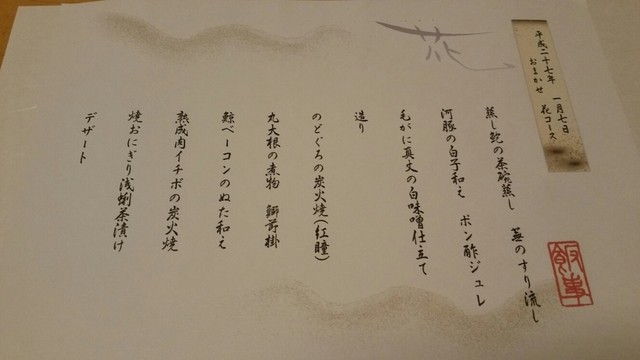 平成二十七年 一月七日
おまかせ 花コース
花
飯事
蒸し鮑の茶碗蒸し 蕪のすり流し
河豚の白子和え ポン酢ジュレ
毛がに真丈の白味噌仕立て
造り
のどぐろの炭火焼(紅瞳)
丸大根の煮物
鯨ベーコンのぬた和え
熟成肉イチボの炭火焼
焼おにぎり浅蜊茶漬け
デザート